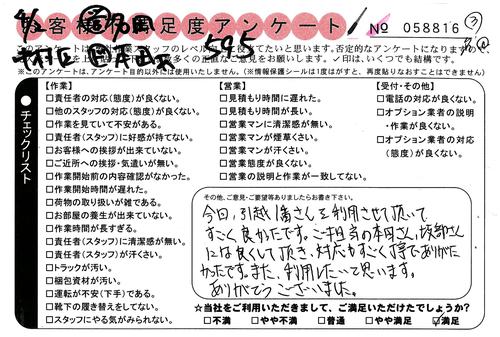 お客様満足度アンケート
№ 058816 ③
595
※このアンケートは、アンケート目的以外には使用いたしません。(※情報保護シールは1度がすと、再度貼りなおすことができません。)
チェックリスト
【作業】
□責任者の対応(態度)が良くない。
□他のスタッフの対応(態度)が良くない。
□作業を見ていて不安がある。
□責任者(スタッフ)に好感が持てない。
□お客様への挨拶が出来ていない。
□ご近所への挨拶・気遣いが無い。
□作業開始前の内容確認がなかった。
□作業開始時間が遅れた。
□荷物の取り扱いが雑である。
□お部屋の養生が出来ていない。
□作業時間が長すぎる。
□責任者(スタッフ)に清潔感が無い。
□責任者(スタッフ)が汗くさい。
□トラックが汚い。
□梱包資材が汚い。
□運転が不安(下手)である。
□靴下の履き替えをしてない。
□スタッフにやる気がみられない。
【営業】
□見積もり時間に遅れた。
□見積もり時間が長い。
□営業マンに清潔感が無い。
□営業マンが煙草くさい。
□営業マンが汗くさい。
□営業態度が良くない。
□営業の説明と作業が一致してない。
【受付・その他】
□電話の対応が良くない。
□オプション業者の説明
・作業が良くない。
□オプション業者の対応
(態度)が良くない。
その他、ご意見・ご要望等ありましたらお書き下さい。
今日、引越し侍さんを利用させて頂いて
すごく良かったです。ご担当の本母さん、阪部さん
には良くして頂き、対応もすごく丁寧でありがた
かったです。また、利用したいと思います。
ありがとうございました。
★当社をご利用いただきまして、ご満足いただけたでしょうか?
□不満 □やや不満 □普通 □やや満足 ☑満足